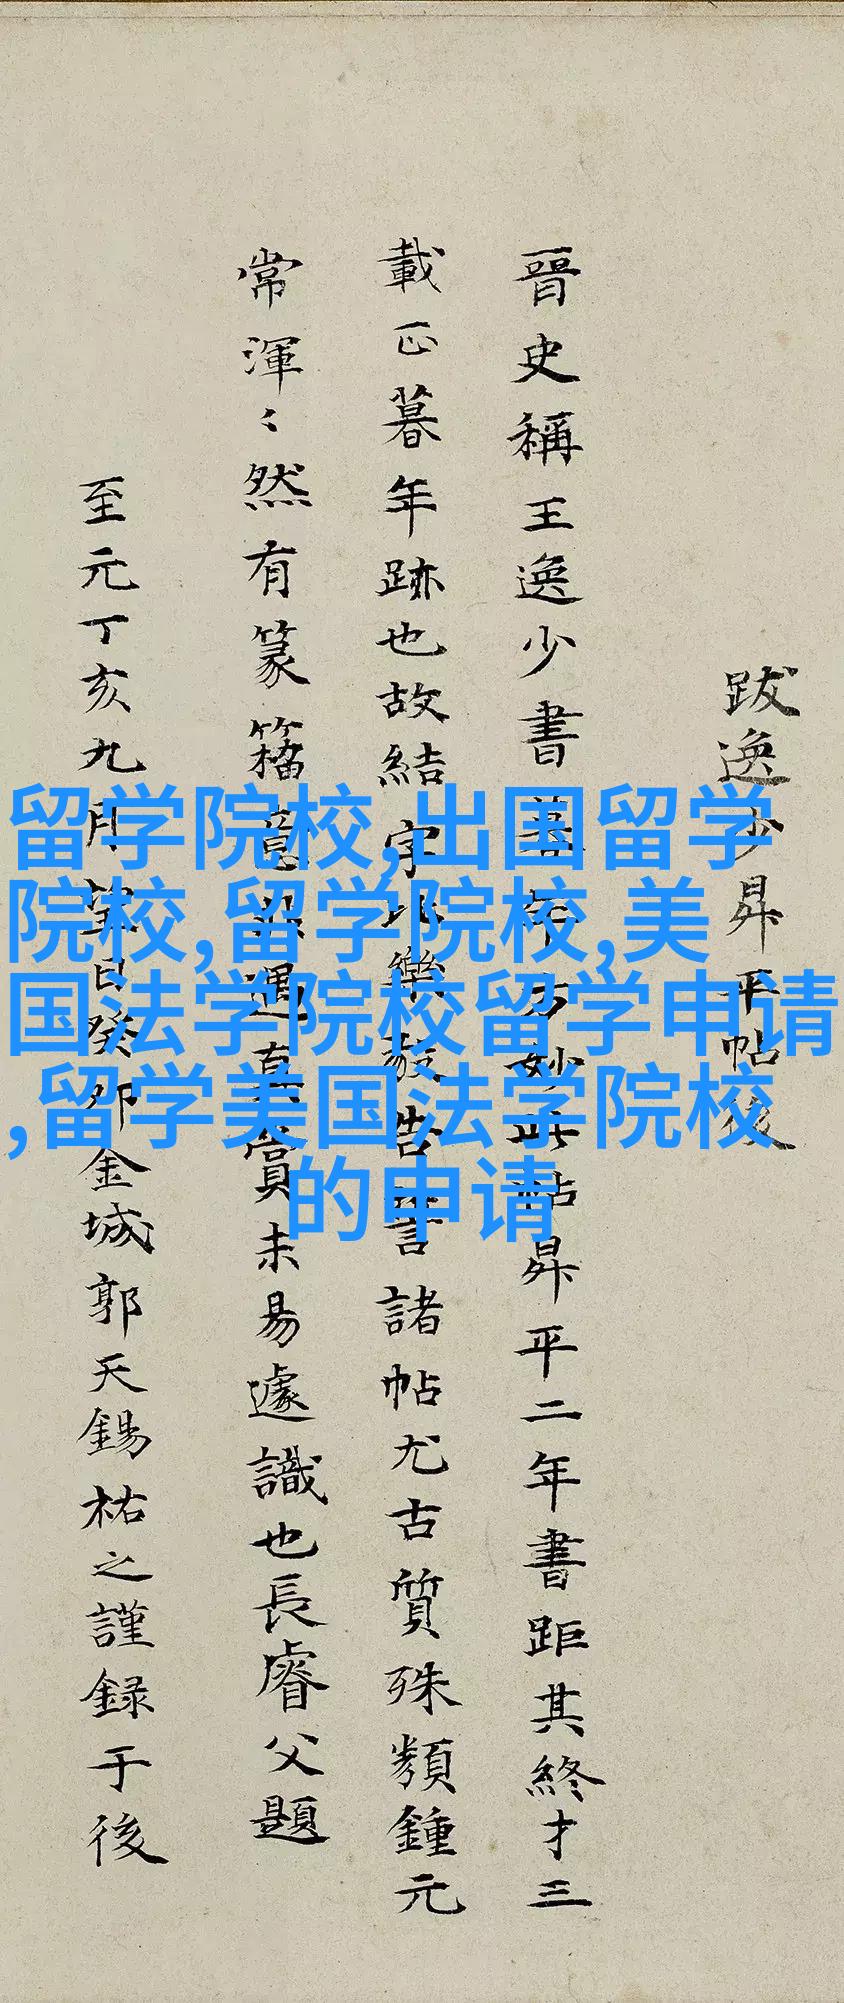 跋逸少昇平帖後
晉史稱王逸少書暮年方妙此帖昇平二年書距其終才三
載正暮年跡也故結字比樂毅告誓諸帖尤古質殊類鍾元
常渾〻然有篆籀意非遇真賞未易遽識也長睿父題
至元丁亥九月望日癸卯金城郭天錫祐之謹録于後
留学院校,出国留学
院校,留学院校,美
国法学院校留学申请
,留学美国法学院校
的申请